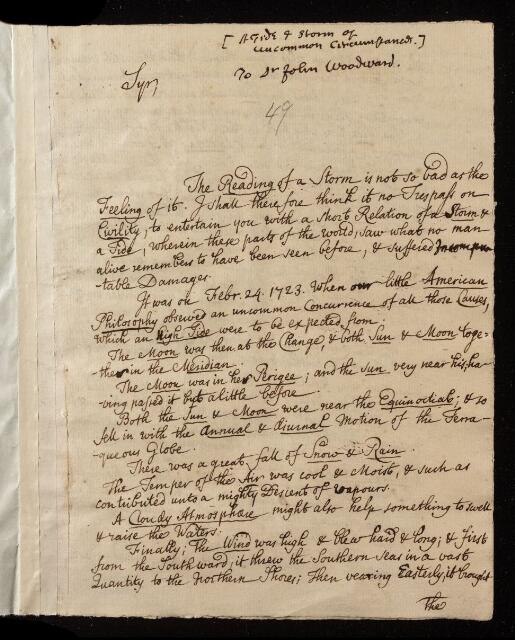 [A Tide & Storm of
uncommon Circumstances.]
To Dr John Woodward.
Syr,
49
The Reading of a Storm is not so bad as the
Feeling of it. I shall therefore think it no Trespass on
Civility, to entertain you with a short Relation of a Storm &
a Tide, wherein these parts of the world, saw what no man
alive remembers to have been seen before, & suffered Incompu-
table Damages.
It was on Febr. 24. 1723. When our little American
Philosophy observed an uncommon Concurrence of all those Causes,
which an High Tide were to be expected from.
The Moon was then at the Change, & both Sun & Moon toge-
ther in the Meridian.
The Moon was in her Perigee; and the Sun very near his, ha-
ving passed it but a little before.
Both the Sun & Moon were near the Equinoctial; & so
fell in with the Annual & diurnal Motion of the Terra-
queous Globe.
There was a great fall of Snow & Rain.
The Temper of the Air was cool & Moist, & such as
contributed unto a mighty Descent of vapours.
A Cloudy Atmosphære might also help something to swell
& raise the Waters.
Finally; The Wind was high & blew hard & long; & first
from the Southward; it threw the Southern Seas in a vast
Quantity to the Northern Shores; Then veering Easterly, it brought
the